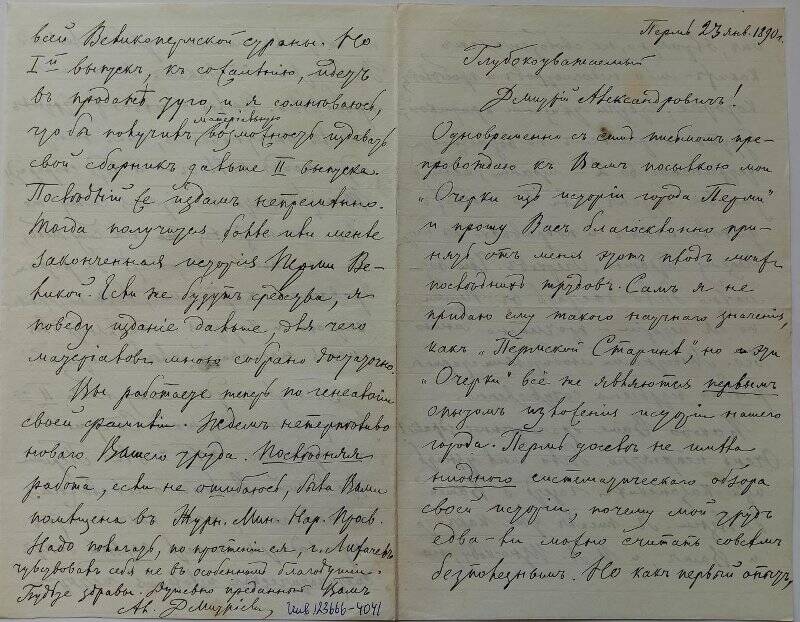 Пермь 23 янв. 1890 г.
Глубокоуважаемый
Дмитрій Александровичъ!
Одновременно съ симъ письмомъ пре-
провождаю къ Вамъ посылкою мои
„Очерки изъ исторіи города Перми"
и прошу Васъ благосклонно при-
нять отъ меня этотъ плодъ моихъ
послѣднихъ трудовъ. Самъ я не
придаю ему такого научнаго значенія,
какъ „Пермской Старинѣ", но эти
„Очерки" всё же являются первымъ
опытомъ изложенія исторіи нашего
города. Пермь доселѣ не имѣла
ниоднаго систематическаго обзора
своей исторіи, почему мой трудъ
едва-ли можно считать совсѣмъ
безполезнымъ. Но какъ первый опытъ,
всей Великопермской страны. Но
I-й выпускъ, къ сожалѣнію, идетъ
въ продажѣ туго, и я сомнѣваюсь,
что бы получилъ матеріальную возможность издавать
свой сборникъ дальше II выпуска.
Послѣдній же издамъ непремѣнно.
Тогда получится болѣе или менѣе
законченная исторія Перми Ве-
ликой. Если же будутъ средства, я
поведу изданіе дальше, для чего
матеріаловъ мною собрано достаточно.
Вы работаете теперь по генеалогіи
своей фамиліи. Ждемъ нетерпѣливо
новаго Вашего труда. Послѣдняя
работа, если не ошибаюсь, была Вами
помѣщена въ Журн. Мин. Нар. Просв.
Надо полагать, по прочтеніи ея, г. Лихачевъ
чувствовалъ себя не въ особенномъ благодушіи.
Будьте здравы. Душевно преданный Вамъ
Ал. Дмитріевъ
инв 123666-4041